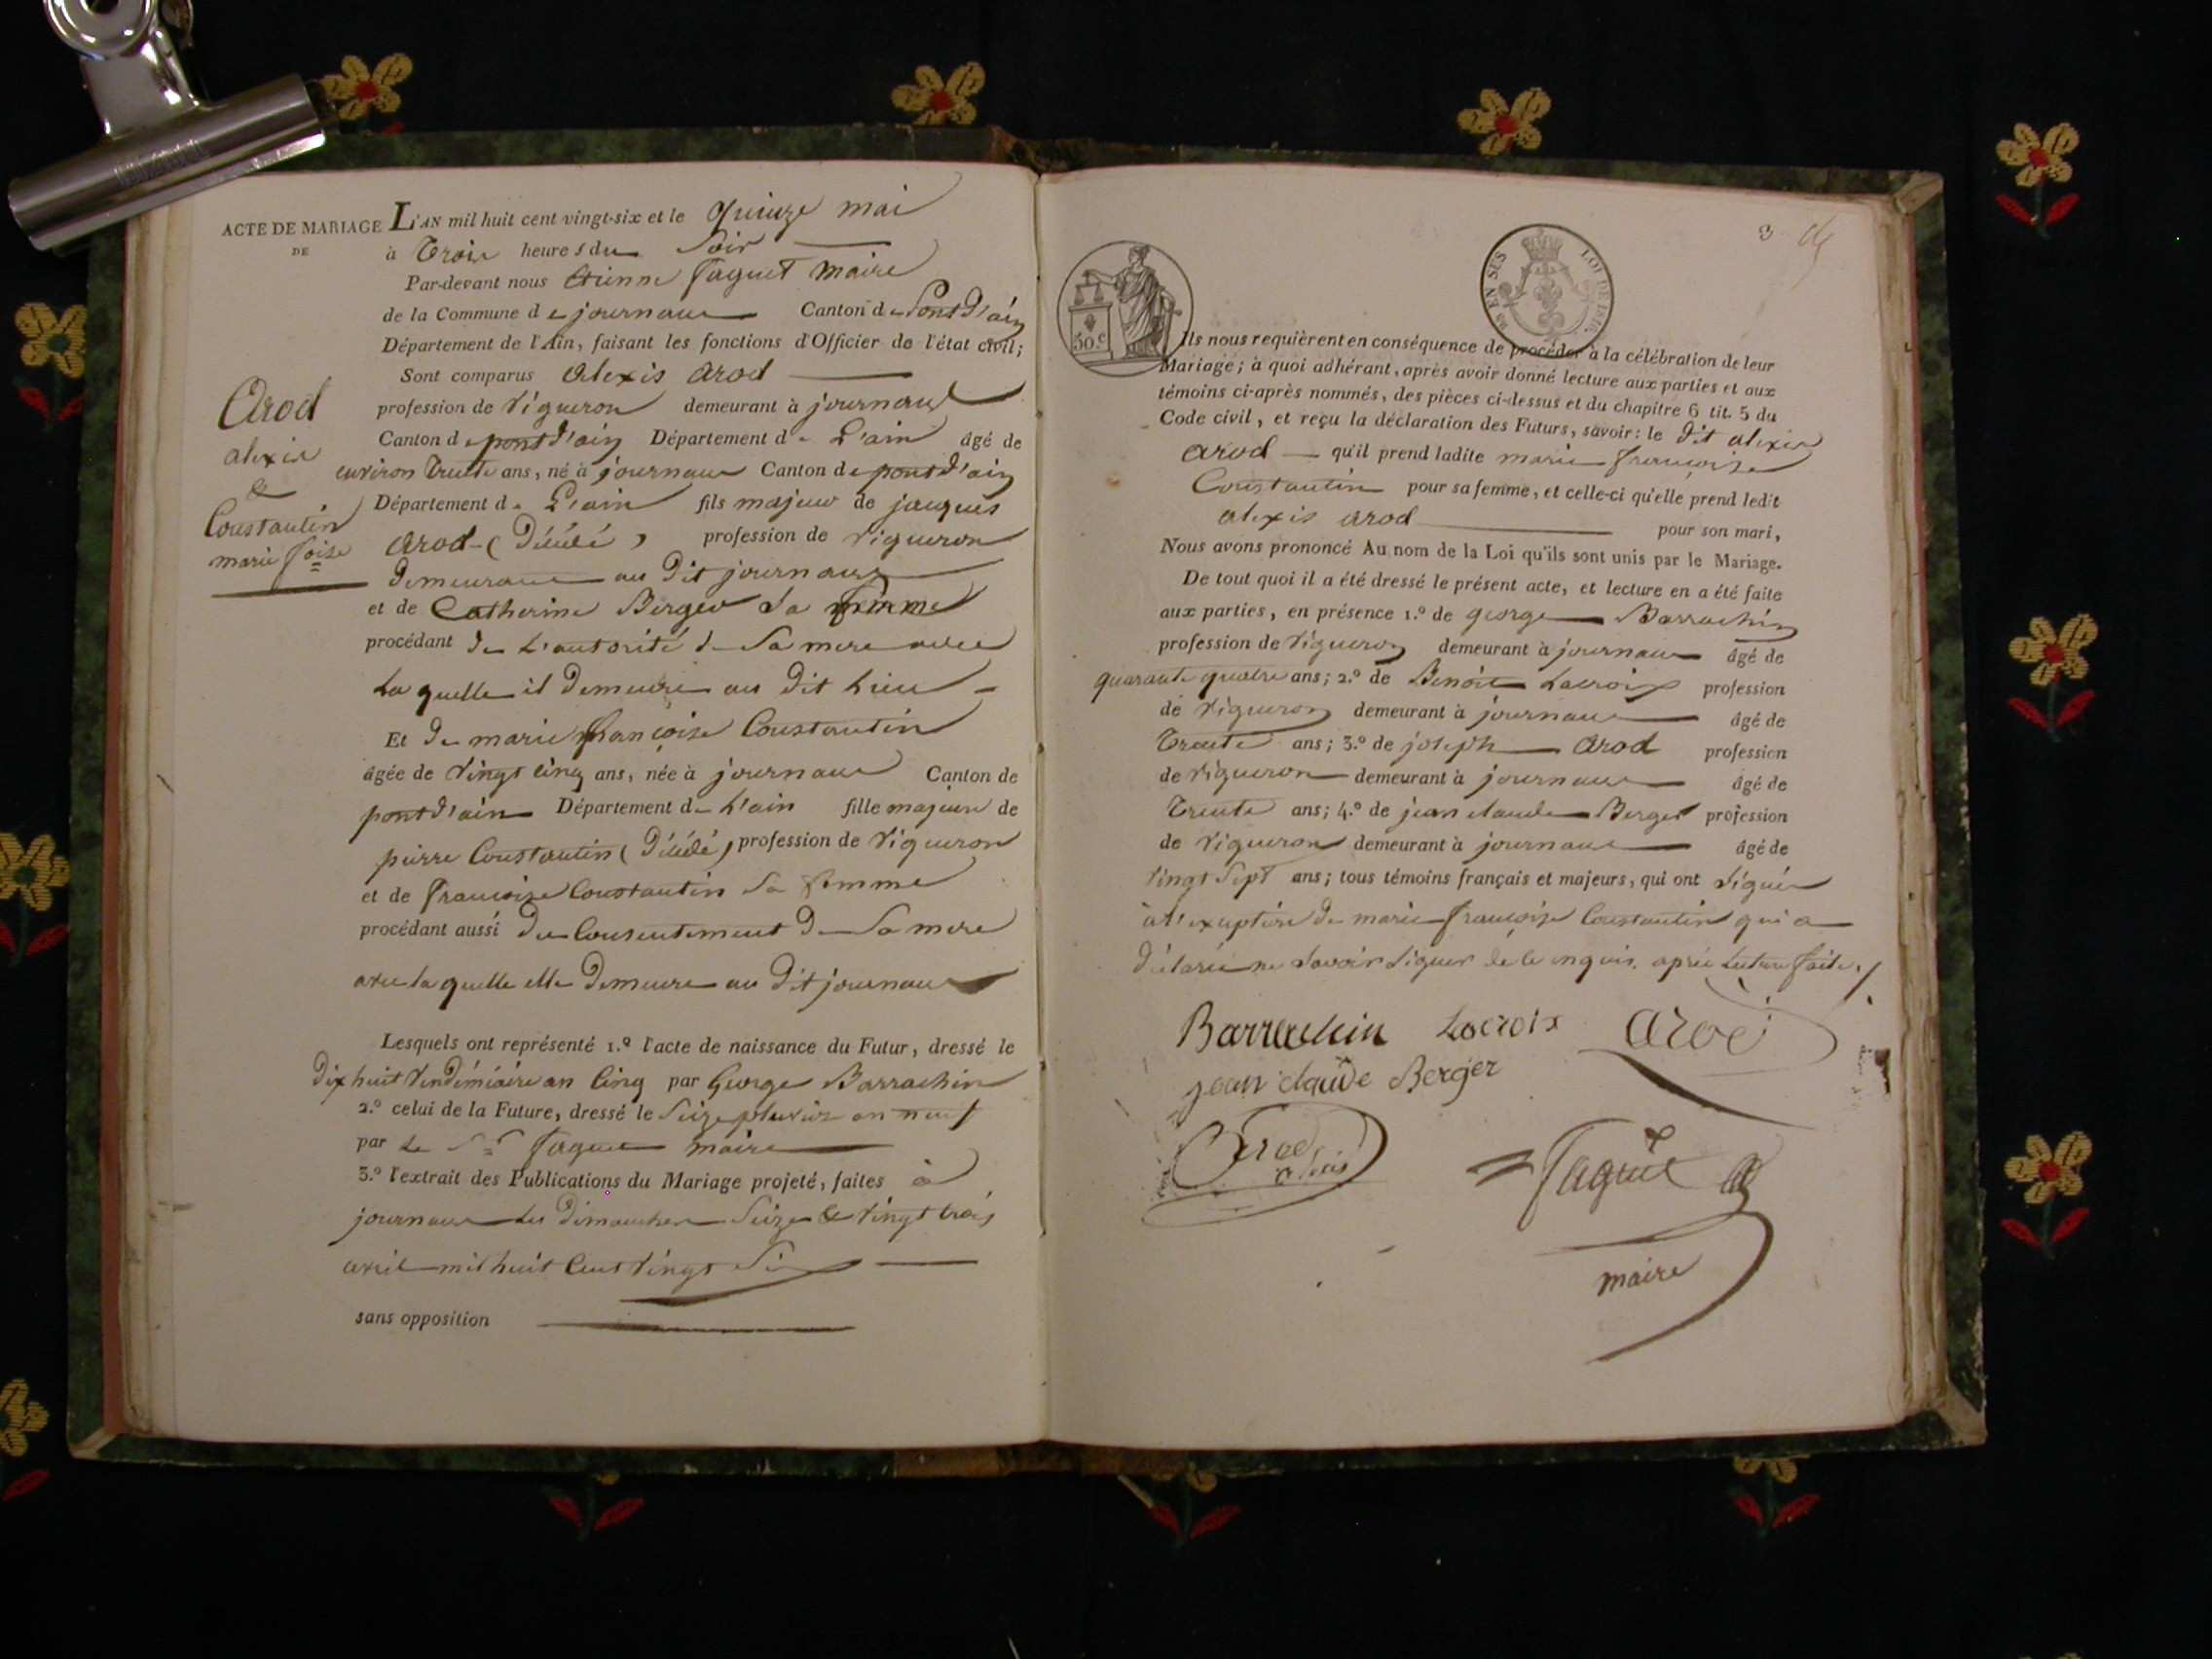 ACTE DE MARIAGE
DE
Arod
alexis
&
Constantin
marie foise
L'AN mil huit cent vingt-six et le quinze mai
à trois heures du soir
Par-devant nous Etienne faguet maire
de la Commune de journans Canton de Pont d'ain
Département de l'Ain, faisant les fonctions d'Officier de l'état civil;
Sont comparus alexis arod
profession de vigneron demeurant à journans
Canton de pont d'ain Département de L'ain âgé de
environ trente ans, né à journans Canton de pont d'ain
Département de L'ain fils majeur de jacques
arod (décédé) profession de vigneron
demeurant au dit journans
et de Catherine Berger sa femme
procédant de L'autorité de sa mere avec
laquelle il demeure au dit Lieu
Et de marie françoise Constantin
âgée de vingt cinq ans, née à journans Canton de
pont d'ain Département de L'ain fille majeure de
pierre Constantin (décédé) profession de vigneron
et de françoise Constantin sa femme
procédant aussi du Consentement de sa mere
avec laquelle elle demeure au dit journans
Lesquels ont représenté 1.º l'acte de naissance du Futur, dressé le
dix huit vendémiaire an cinq par George Barrachin
2.º celui de la Future, dressé le seize pluviose an neuf
par Le Sr faguet maire
3.º l'extrait des Publications du Mariage projeté, faites à
journans les dimanches seize & vingt trois
avril mil huit cent vingt six
sans opposition
3
30.c
EN SUS
LOI DE
Ils nous requièrent en conséquence de procéder à la célébration de leur
Mariage; à quoi adhérant, après avoir donné lecture aux parties et aux
témoins ci-après nommés, des pièces ci-dessus et du chapitre 6 tit. 5 du
Code civil, et reçu la déclaration des Futurs, savoir: le dit alexis
arod qu'il prend ladite marie françoise
Constantin pour sa femme, et celle-ci qu'elle prend ledit
alexis arod pour son mari,
Nous avons prononcé Au nom de la Loi qu'ils sont unis par le Mariage.
De tout quoi il a été dressé le présent acte, et lecture en a été faite
aux parties, en présence 1.º de george Barrachin
profession de vigneron demeurant à journans âgé de
quarante quatre ans; 2.º de Benoit Lacroix profession
de vigneron demeurant à journans âgé de
trente ans; 3.º de joseph arod profession
de vigneron demeurant à journans âgé de
trente ans; 4.º de jean claude Berger profession
de vigneron demeurant à journans âgé de
vingt sept ans; tous témoins français et majeurs, qui ont signés
à l'exception de marie françoise Constantin qui a
déclarée ne savoir signer de ce enquis. après Lecture faite.
Barrachin Lacroix arod
jean claude Berger
Arod
alexis
faguet
maire